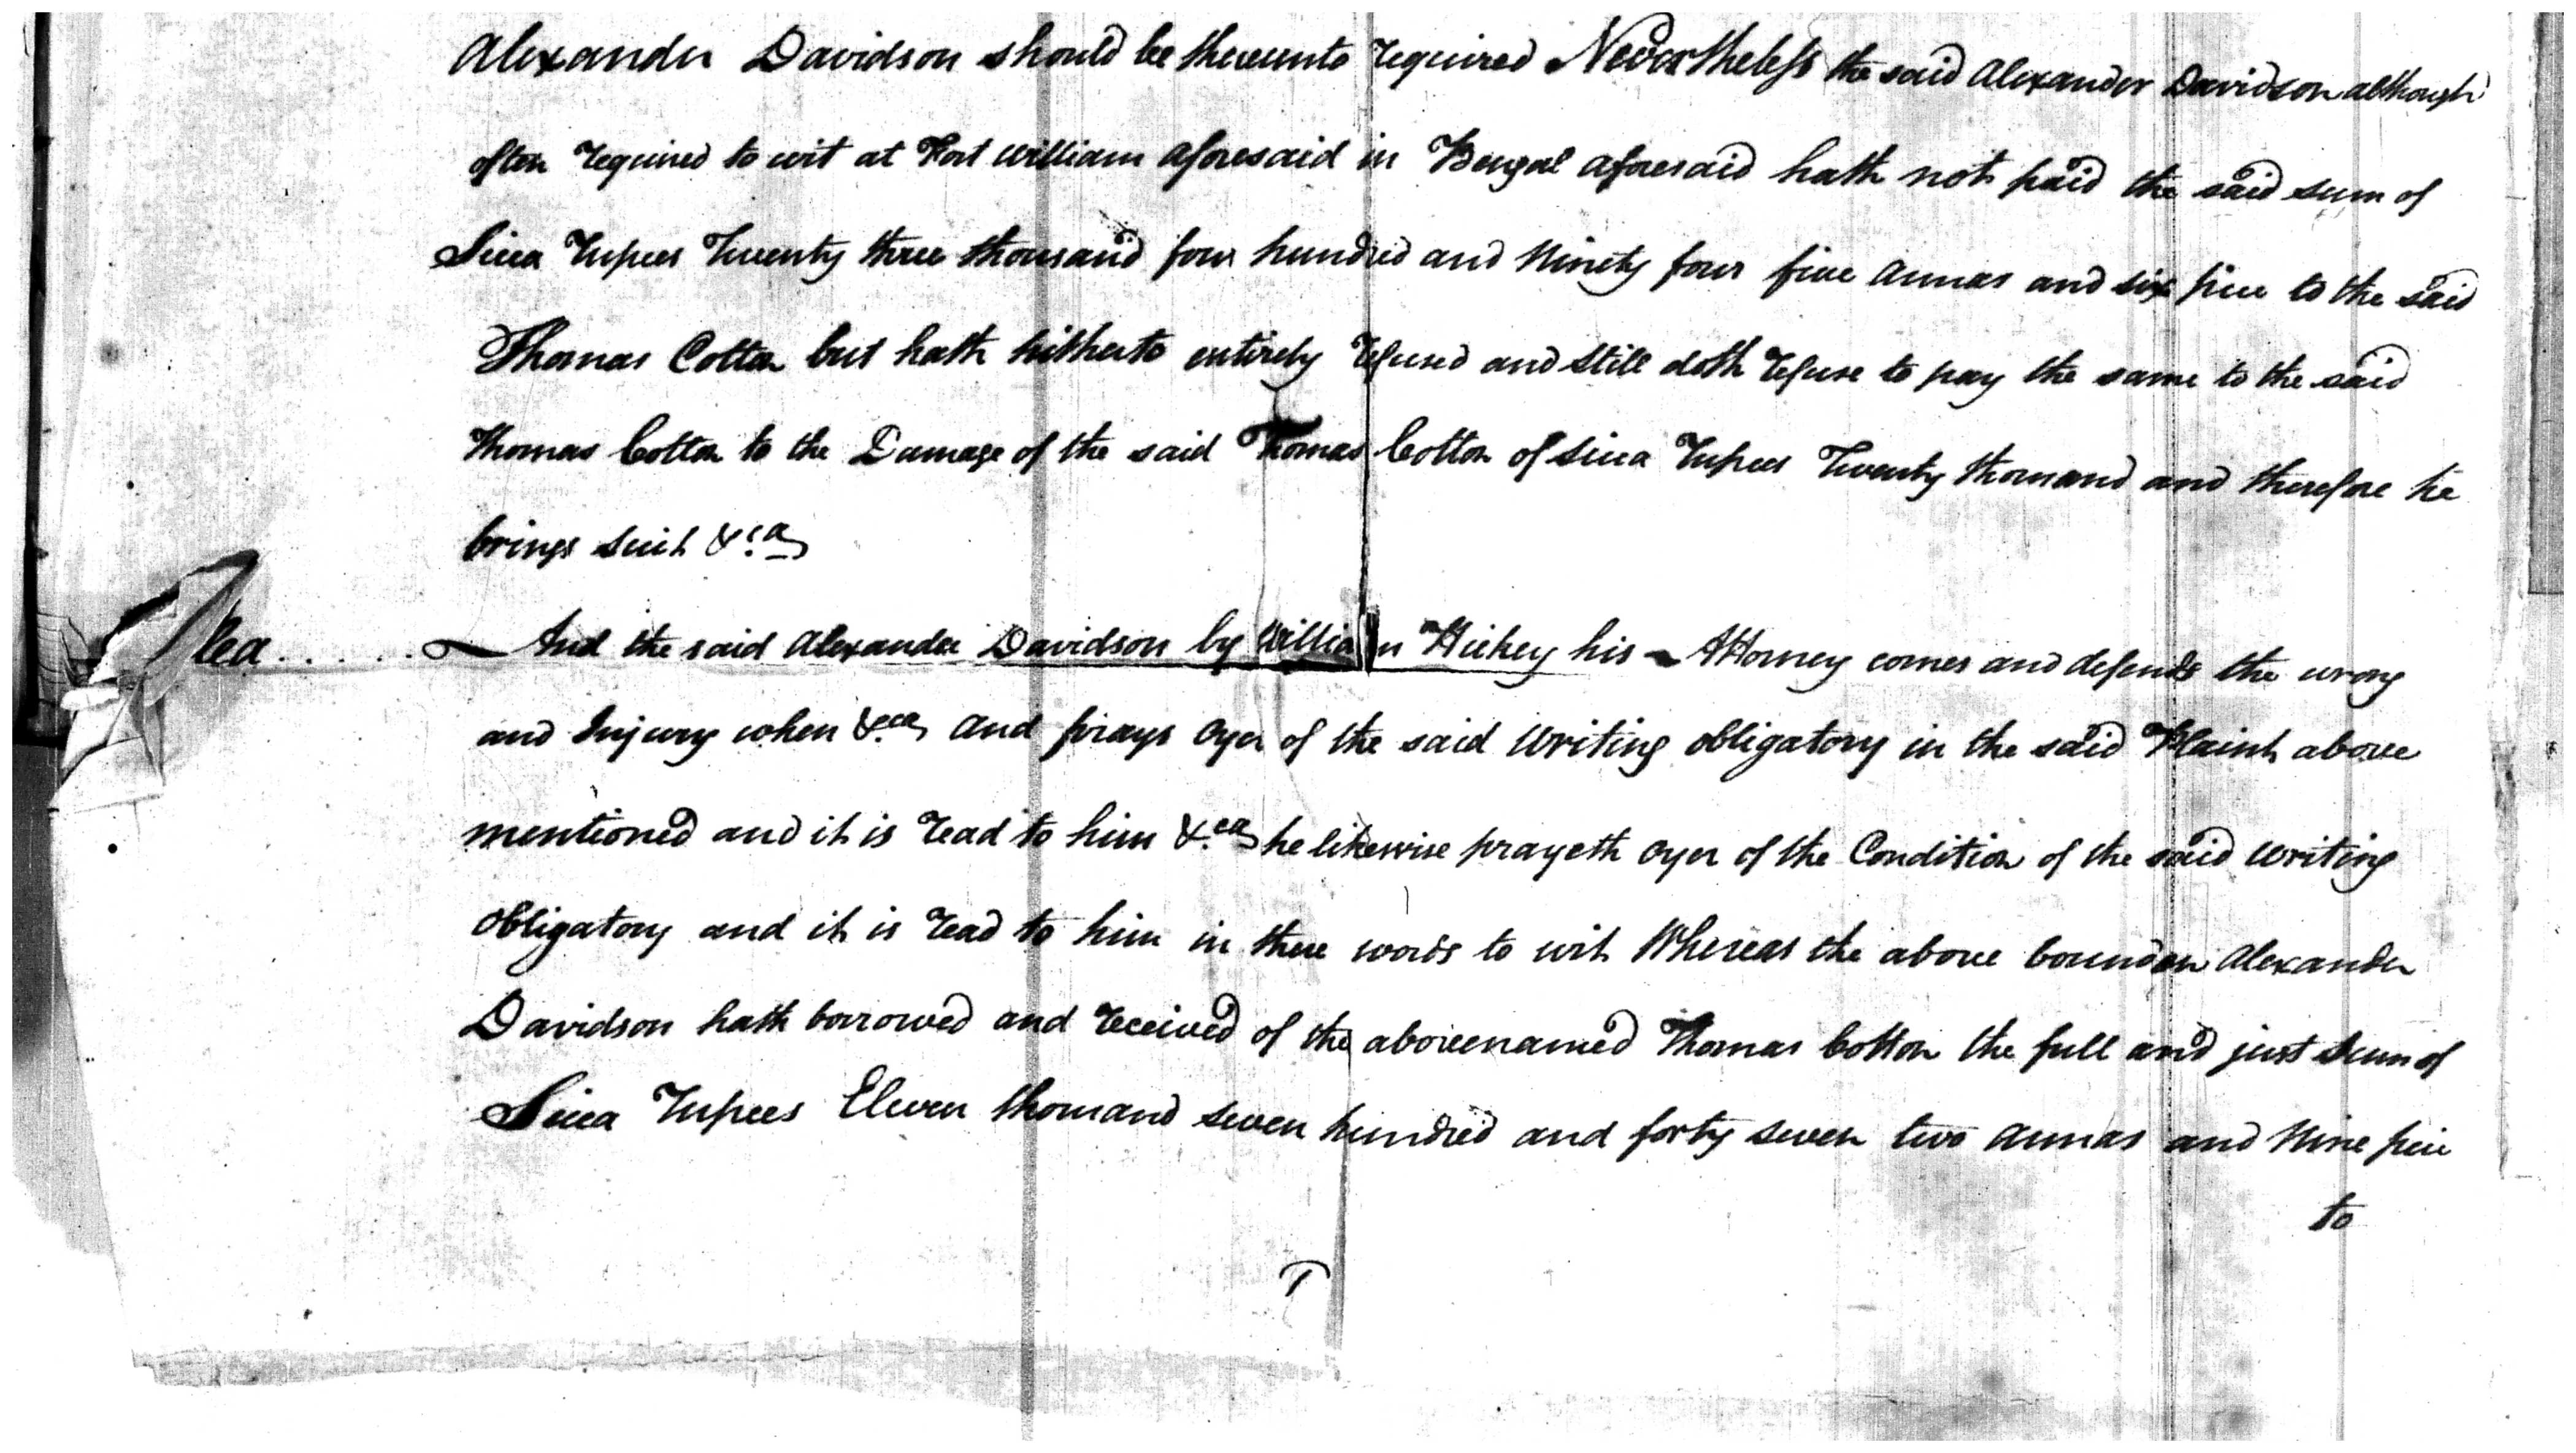 Alexander Davidson should be thereunto required Nevertheless the said Alexander Davidson although
often required to wit at Fort William aforesaid in Bengal aforesaid hath not paid the said sum of
Sicca Rupees Twenty three thousand four hundred and Ninety four five annas and six pice to the said
Thomas Cotton but hath hitherto entirely refused and still doth refuse to pay the same to the said
Thomas Cotton to the Damage of the said Thomas Cotton of Sicca Rupees Twenty thousand and therefore he
brings suit &ca
Plea . . . . . . And the said Alexander Davidson by William Hickey his Attorney comes and defends the wrong
and Injury when &ca and prays Oyer of the said Writing obligatory in the said Plaint above
mentioned and it is read to him &ca he likewise prayeth Oyer of the Condition of the said Writing
obligatory and it is read to him in these words to wit Whereas the above bounden Alexander
Davidson hath borrowed and received of the abovenamed Thomas Cotton the full and just sum of
Sicca Rupees Eleven thousand seven hundred and forty seven two annas and Nine pice
to